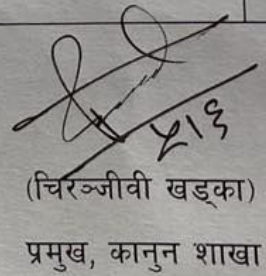 ५१६
(चिरञ्जीवी खड्का)
प्रमुख, कानुन शाखा